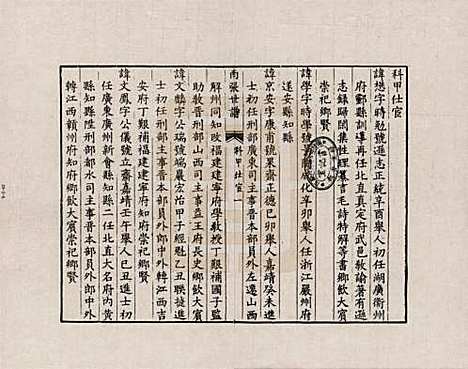 科甲仕官
諱懋字時勉號遜志正統辛酉舉人初任湖廣衡州
府郴縣訓導再任北直真定府武邑教諭著有遜
志錄歸闊集性理纂言毛詩特解等書鄉飲大賓
崇祀鄉賢
諱學字時學號 成化辛卯舉人任浙江嚴州府
遂安縣知縣
諱京安字廣甫號東齋正德己卯舉人嘉靖癸未進
士初任刑部廣東司主事晉本部員外左遷山西
南張世譜
科甲仕官
一
解州同知改福建建寧府學教授丁艱補國子監
助教晉刑部山西司主事益王府長史鄉飲大賓
諱文麟字公儀號端巖宏治甲子經魁乙丑聯捷進
士初任刑部主事晉本部員外郎中外轉江西吉
安府丁艱補福建建寧府知府崇祀鄉賢
諱文鳳字公儀號立齋嘉靖壬午舉人己丑進士初
任廣東廣州新會縣知縣二任北直大名府內黃
縣知縣陞刑部都水司主事晉本部員外郎中外
轉江西贛州府知府鄉飲大賓崇祀鄉賢